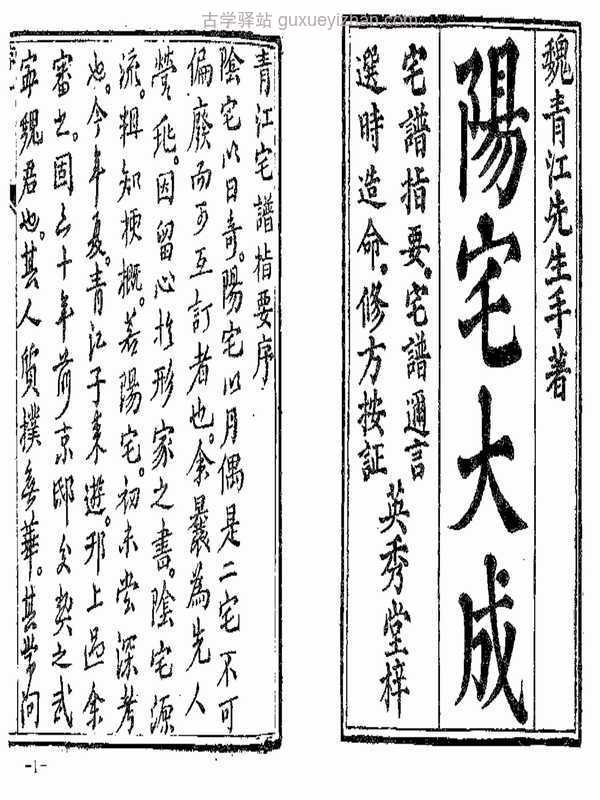 古学驿站 guxueyizhan.com
魏青江先生手著
陽宅大成
宅譜指要。宅譜邇言
選時造命。修方按証
英秀堂梓
青江宅譜指要序
陰宅以日奇。陽宅以月偶是二宅不可
偏廢而可互訂者也。余曩為先人
營兆。因留心於形家之書。陰宅源
流。輯知梗概。若陽宅。初未嘗深考
也。今年夏。青江子來遊。邗上過余
審之。固三十年前京邸交契之武
寧魏君也。其人質樸無華。其學问
-1-